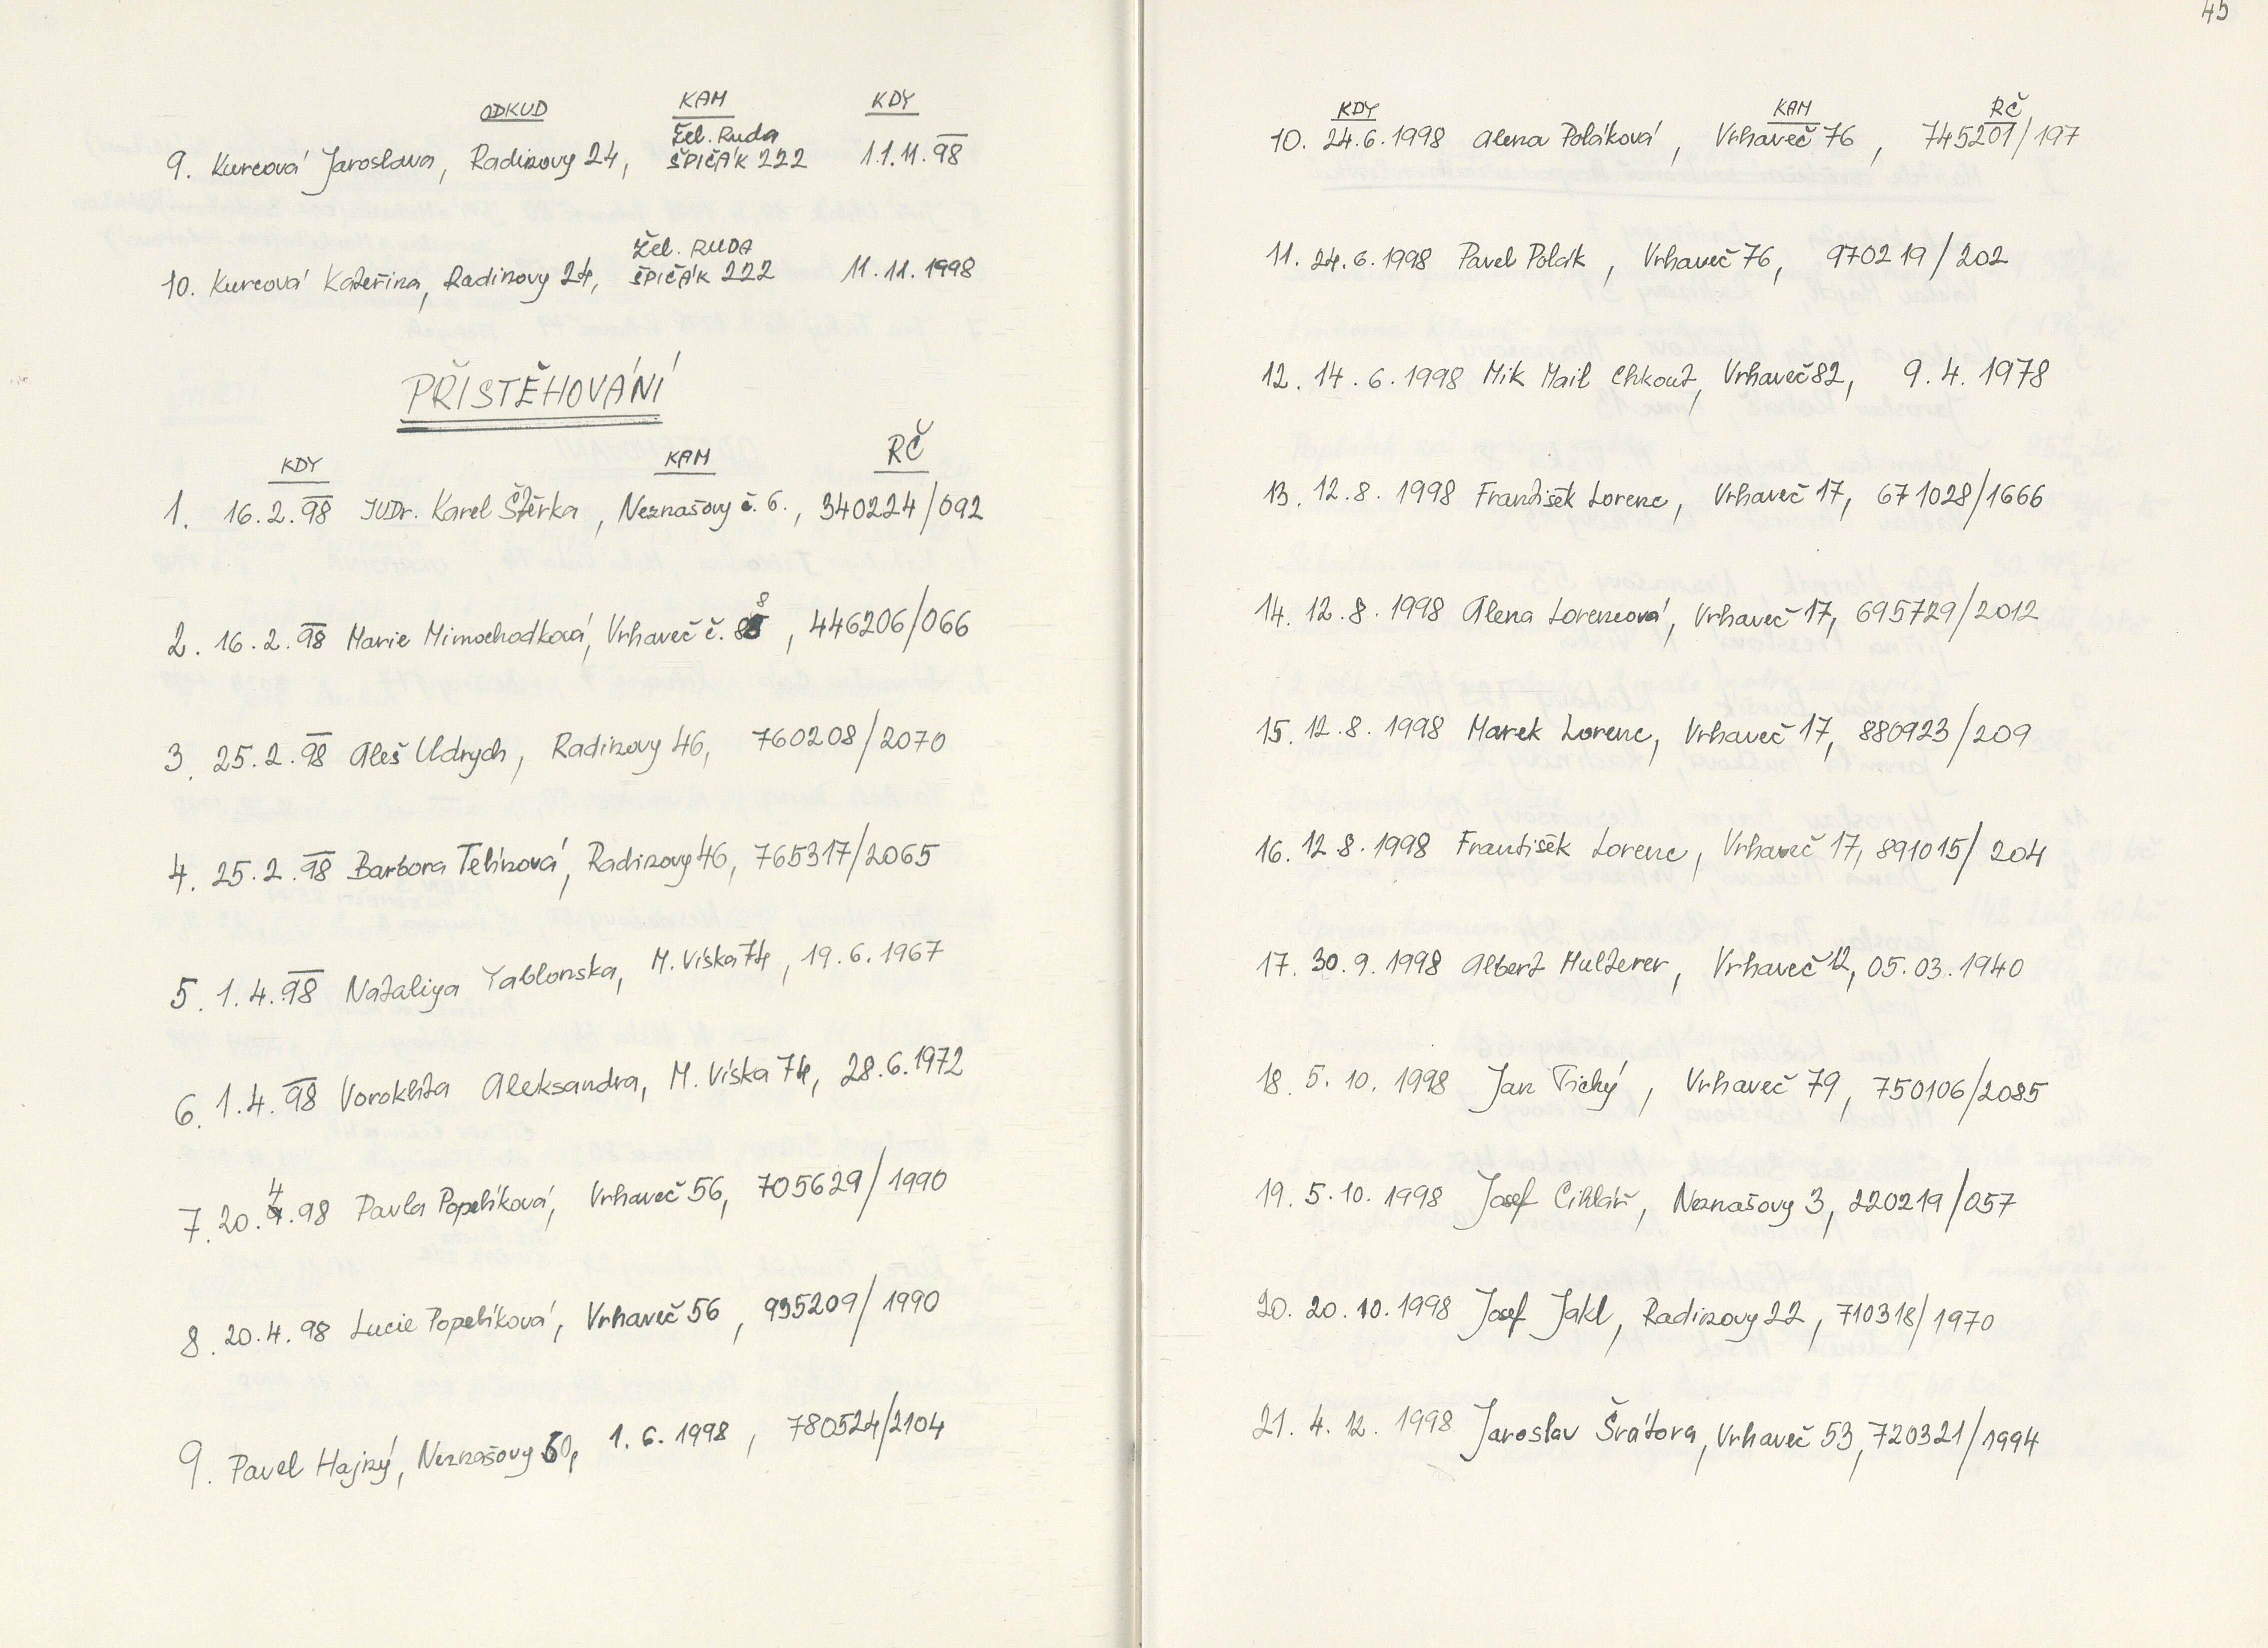 ODKUD KAM KDY
9. Kurcová Jaroslava, Radinovy 24, Žel. Ruda ŠPIČÁK 222 11.11.98
10. Kurcová Kateřina, Radinovy 24, Žel. RUDA ŠPIČÁK 222 11.11.1998
PŘISTĚHOVÁNÍ
KDY KAM RČ
1. 16.2.98 JUDr. Karel Štěrka, Neznašovy č. 6., 340224/092
2. 16.2.98 Marie Mimochodková, Vrhaveč č. 88, 446206/066
3. 25.2.98 Aleš Udrych, Radinovy 46, 760208/2070
4. 25.2.98 Barbora Telínová, Radinovy 46, 765317/2065
5. 1.4.98 Nataliya Yablonska, M. Víska 74, 19.6.1967
6. 1.4.98 Vorokhta Aleksandra, M. Víska 74, 28.6.1972
7. 20.4.98 Pavla Popelíková, Vrhaveč 56, 705629/1990
8. 20.4.98 Lucie Popelíková, Vrhaveč 56, 935209/1990
9. Pavel Hajný, Neznašovy 60, 1.6.1998, 780524/2104
45
KDY KAM RČ
10. 24.6.1998 Alena Poláková, Vrhaveč 76, 745201/197
11. 24.6.1998 Pavel Polák, Vrhaveč 76, 970219/202
12. 14.6.1998 Mik Mail Chkout, Vrhaveč 82, 9.4.1978
13. 12.8.1998 František Lorenc, Vrhaveč 17, 671028/1666
14. 12.8.1998 Alena Lorencová, Vrhaveč 17, 695729/2012
15. 12.8.1998 Marek Lorenc, Vrhaveč 17, 880923/209
16. 12.8.1998 František Lorenc, Vrhaveč 17, 891015/204
17. 30.9.1998 Albert Multerer, Vrhaveč 12, 05.03.1940
18. 5.10.1998 Jan Tichý, Vrhaveč 79, 750106/2085
19. 5.10.1998 Josef Cihlář, Neznašovy 3, 220219/057
20. 20.10.1998 Josef Jakl, Radinovy 22, 710318/1970
21. 4.12.1998 Jaroslav Švátora, Vrhaveč 53, 720321/1994